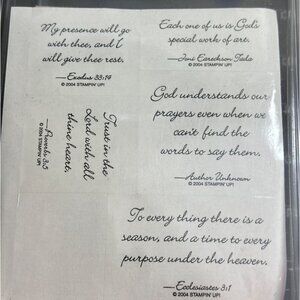 My presence will go
with thee, and I
will give thee rest.
—Exodus 33:14
© 2004 STAMPIN' UP!
Each one of us is God's
special work of art.
—Joni Eareckson Tada
© 2004 STAMPIN' UP!
God understands our
prayers even when we
can't find the
words to say them.
—Author Unknown
© 2004 STAMPIN' UP!
Trust in the
Lord with all
thine heart.
—Proverbs 3:5
© 2004 STAMPIN' UP!
To every thing there is a
season, and a time to every
purpose under the heaven.
—Ecclesiastes 3:1
© 2004 STAMPIN' UP!